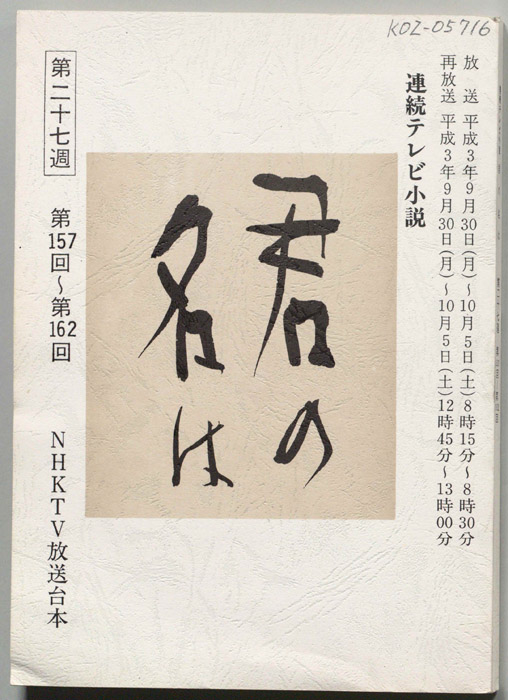 KOZ-05716
放　送 平成3年9月30日(月)〜10月5日(土)8時15分〜8時30分
再放送 平成3年9月30日(月)〜10月5日(土)12時45分〜13時00分
連続テレビ小説
君の
名は
第二十七週
第157回〜第162回
NHKTV放送台本